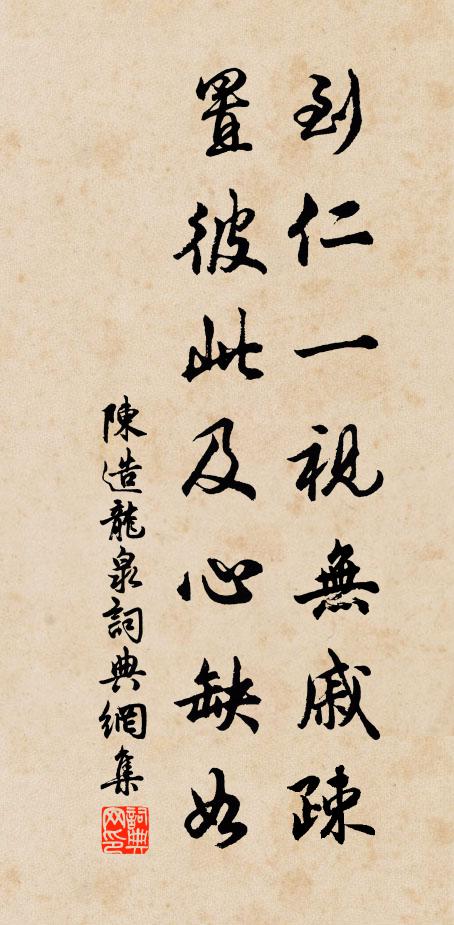 到仁一視無戚疎
置彼此及心缺如
陳造龍泉詞典網集
詞典網印